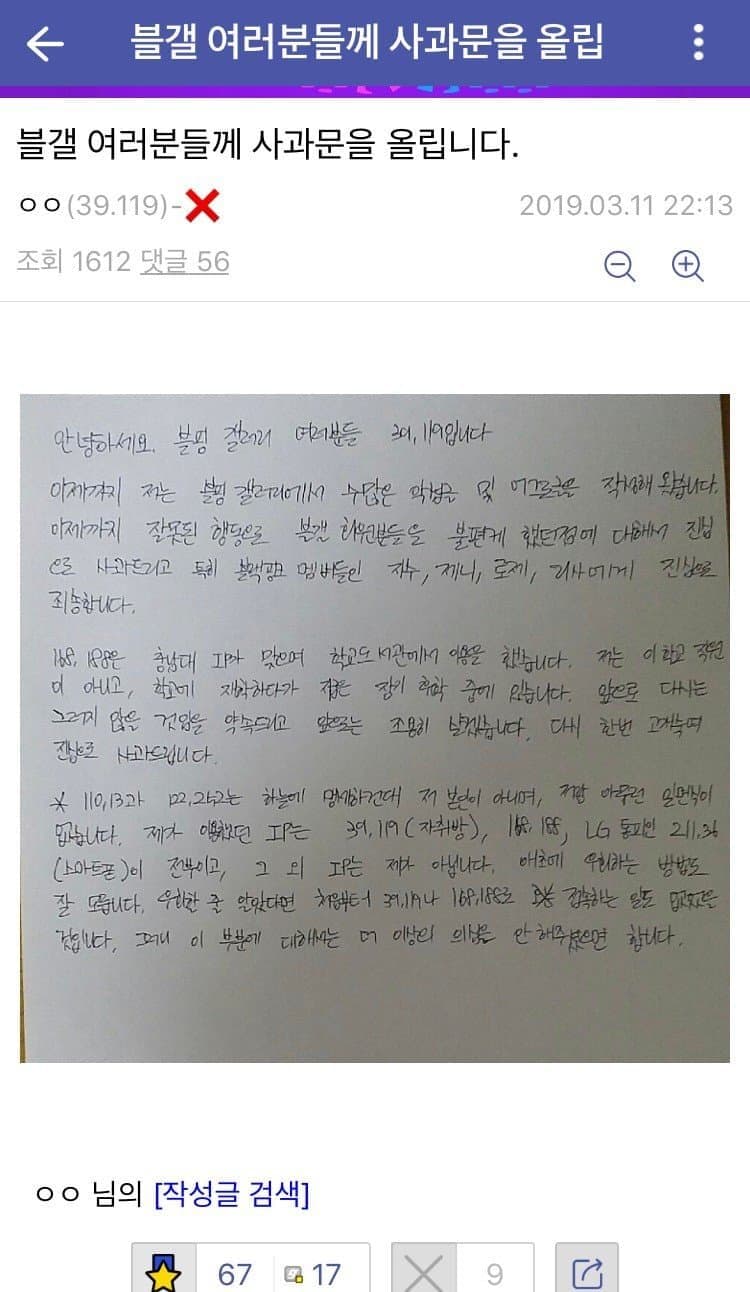 블갤 여러분들께 사과문을 올립
블갤 여러분들께 사과문을 올립니다.
ㅇㅇ(39.119)-
2019.03.11 22:13
조회 1612 댓글 56
안녕하세요. 블핑 갤러리 여러분들 39,119입니다
이제까지 저는 블핑 갤러리에서 수많은 악성글 및 어그로글을 작성해 왔습니다.
이제까지 잘못된 행동으로 블갤 회원분들을 불편케 했던점에 대해서 진심
으로 사과드리고 특히 블랙핑크 멤버들인 지수, 제니, 로제, 리사에게 진심으로
죄송합니다.
168, 188은 충남대 IP가 맞으며 학교도서관에서 이용을 했습니다. 저는 이학교 직원
이 아니고, 학교에 재학하다가 장기 휴학 중에 있습니다. 앞으로 다시는
그러지 않을 것임을 약속드리고 앞으로는 조용히 살겠습니다. 다시 한번 고개숙여
진심으로 사과드립니다.
* 110,13과 122,252는 하늘에 맹세하건대 저 본인이 아니며, 저랑 아무런 일면식이
없습니다. 제가 이용했던 IP는 39,119(자취방), 168,188, LG 통피인 211.36
(스마트폰)이 전부이고, 그 외 IP는 제가 아닙니다. 애초에 우회하는 방법도
잘 모릅니다. 우회할 줄 알았다면 처음부터 39,119나 168,188로 접속하는 일도 없었을
것입니다. 그러니 이 부분에 대해서는 더 이상의 의심을 안 해주셨으면 합니다.
ㅇㅇ 님의 [작성글 검색]
67 17 9